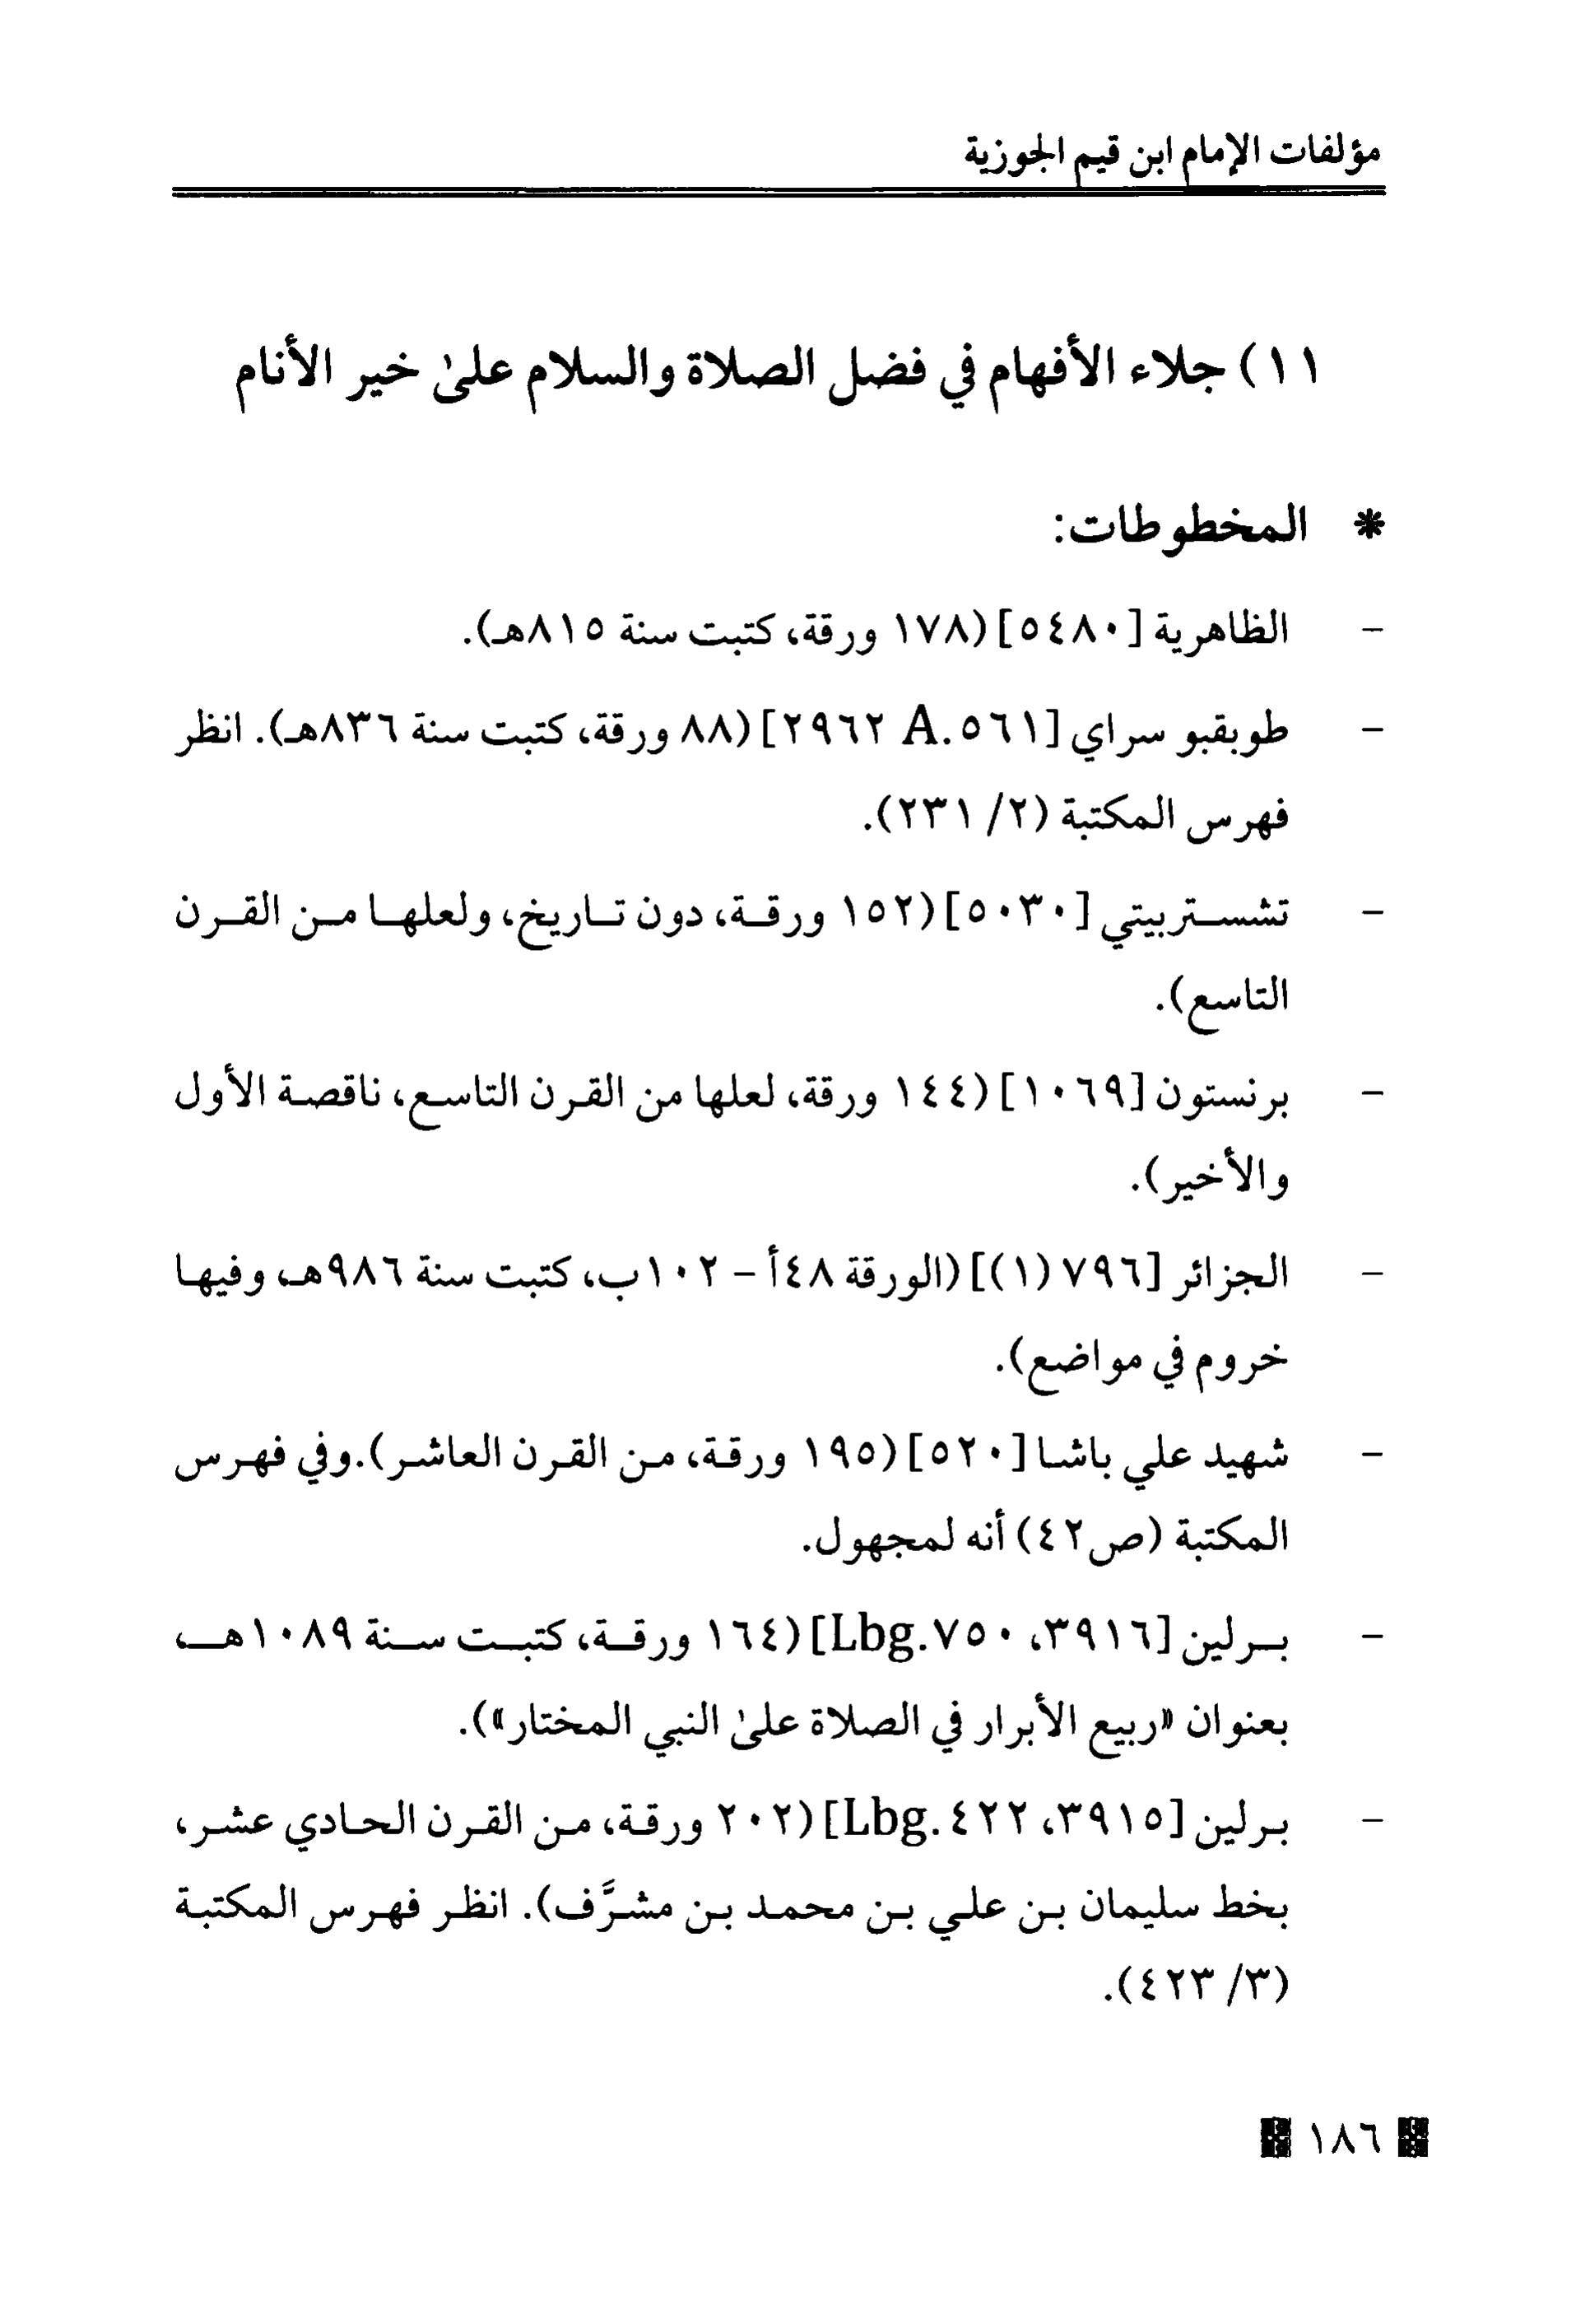 مؤلفات الإمام ابن قيم الجوزية
١١) جلاء الأفهام في فضل الصلاة والسلام علىٰ خير الأنام
* المخطوطات:
- الظاهرية [٥٤٨٠] (١٧٨ ورقة، كتبت سنة ٨١٥هـ).
- طوبقبو سراي [٥٦١.A ٢٩٦٢] (٨٨ ورقة، كتبت سنة ٨٣٦هـ). انظر
فهرس المكتبة (٢/ ٢٣١).
- تشستربيتي [٥٠٣٠] (١٥٢ ورقة، دون تاريخ، ولعلها من القرن
التاسع).
- برنستون [١٠٦٩] (١٤٤ ورقة، لعلها من القرن التاسع، ناقصة الأول
والأخير).
- الجزائر [٧٩٦ (١)] (الورقة ٤٨أ - ١٠٢ب، كتبت سنة ٩٨٦هـ، وفيها
خروم في مواضع).
- شهيد علي باشا [٥٢٠] (١٩٥ ورقة، من القرن العاشر).وفي فهرس
المكتبة (ص٤٢) أنه لمجهول.
- برلين [٣٩١٦، ٧٥٠.Lbg] (١٦٤ ورقة، كتبت سنة ١٠٨٩هـ،
بعنوان «ربيع الأبرار في الصلاة علىٰ النبي المختار»).
- برلين [٣٩١٥، ٤٢٢.Lbg] (٢٠٢ ورقة، من القرن الحادي عشر،
بخط سليمان بن علي بن محمد بن مشرَّف). انظر فهرس المكتبة
(٣/ ٤٢٣).
١٨٦